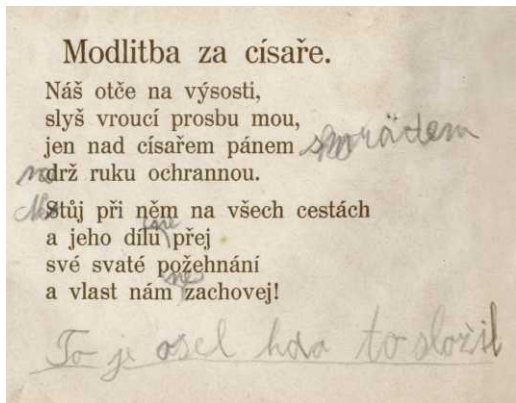 Modlitba za císaře.
Náš otče na výsosti,
slyš vroucí prosbu mou,
jen nad císařem pánem smrädem
ne drž ruku ochrannou.
Ne Stůj při něm na všech cestách
a jeho dílu ne přej
své svaté požehnání
a vlast nám ne zachovej!
To je osel hdo to složil